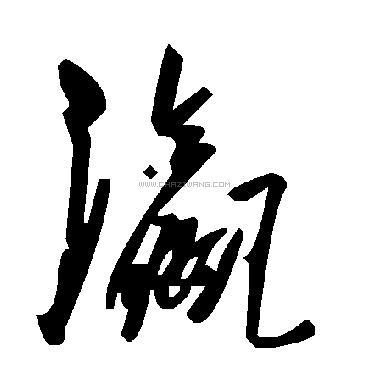 瀛
WWW.CHAZIWANG.COM